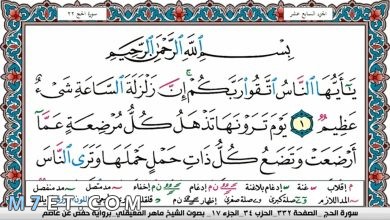 سورة الحج ٢٢
الجزء السابع عشر
بِسْمِ ٱللَّهِ ٱلرَّحْمَٰنِ ٱلرَّحِيمِ
يَٰٓأَيُّهَا ٱلنَّاسُ ٱتَّقُوا۟ رَبَّكُمْ ۚ إِنَّ زَلْزَلَةَ ٱلسَّاعَةِ شَىْءٌ
عَظِيمٌ ١ يَوْمَ تَرَوْنَهَا تَذْهَلُ كُلُّ مُرْضِعَةٍ عَمَّآ
أَرْضَعَتْ وَتَضَعُ كُلُّ ذَاتِ حَمْلٍ حَمْلَهَا وَتَرَى ٱلنَّاسَ
م إقلاب غنة إدغام إدغام بلاغنة إخفاء مد متصل مد منفصل
سورة الحج الصفحة ٣٣٢ الحزب ٣٤ الجزء ١٧ بصوت الشيخ ماهر المعيقلي برواية حفص عن عاصم
M7ET.COM